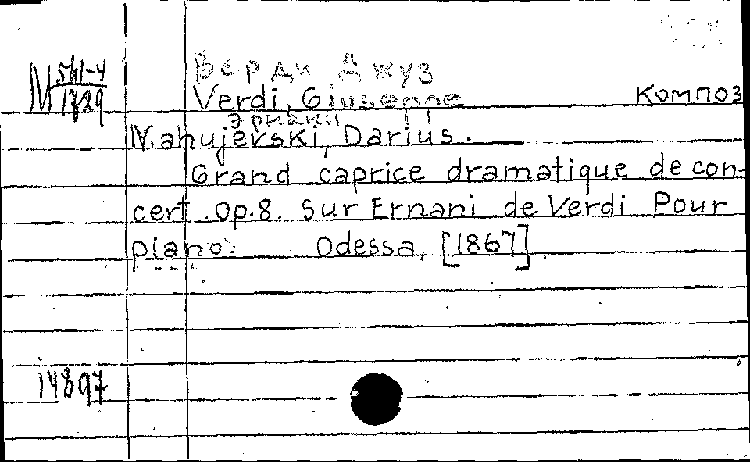 Верди Джуз
M 511-4
1729
Verdi, Giuseppe КОМПОЗ
Эрнани
Nahujevski, Darius.
Grand caprice dramatique de con-
cert. Op.8. Sur Ernani de Verdi Pour
piano. Odessa, [1867]
14897